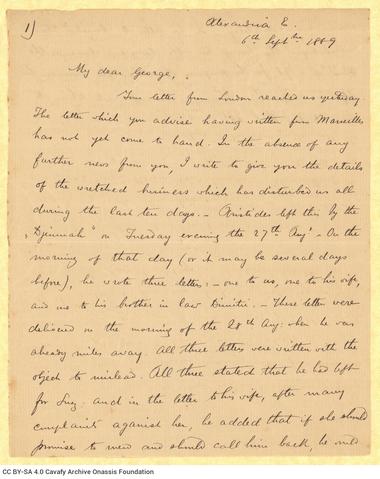 1)
Alexandria E.
6th Septbre 1889
My dear George,
Your letter from London reached us yesterday
The letter which you advise having written from Marseilles
has not yet come to hand. In the absence of any
further news from you, I write to give you the details
of the wretched business which has disturbed us all
during the last ten days. — Aristides left this by the
"Djemnah" on Tuesday evening the 27th Augt — On the
morning of that day (or it may be several days
before), he wrote three letters: — one to us, one to his wife,
and one to his brother in law Dimitri. — These letter were
delivered on the morning of the 28th Aug: when he was
already miles away. All three letters were written with the
object to mislead. All three stated that he had left
for Suez - and in the letter to his wife, after many
complaints against her, he added that if she should
promise to mend and should call him back, he would
CC BY-SA 4.0 Cavafy Archive Onassis Foundation